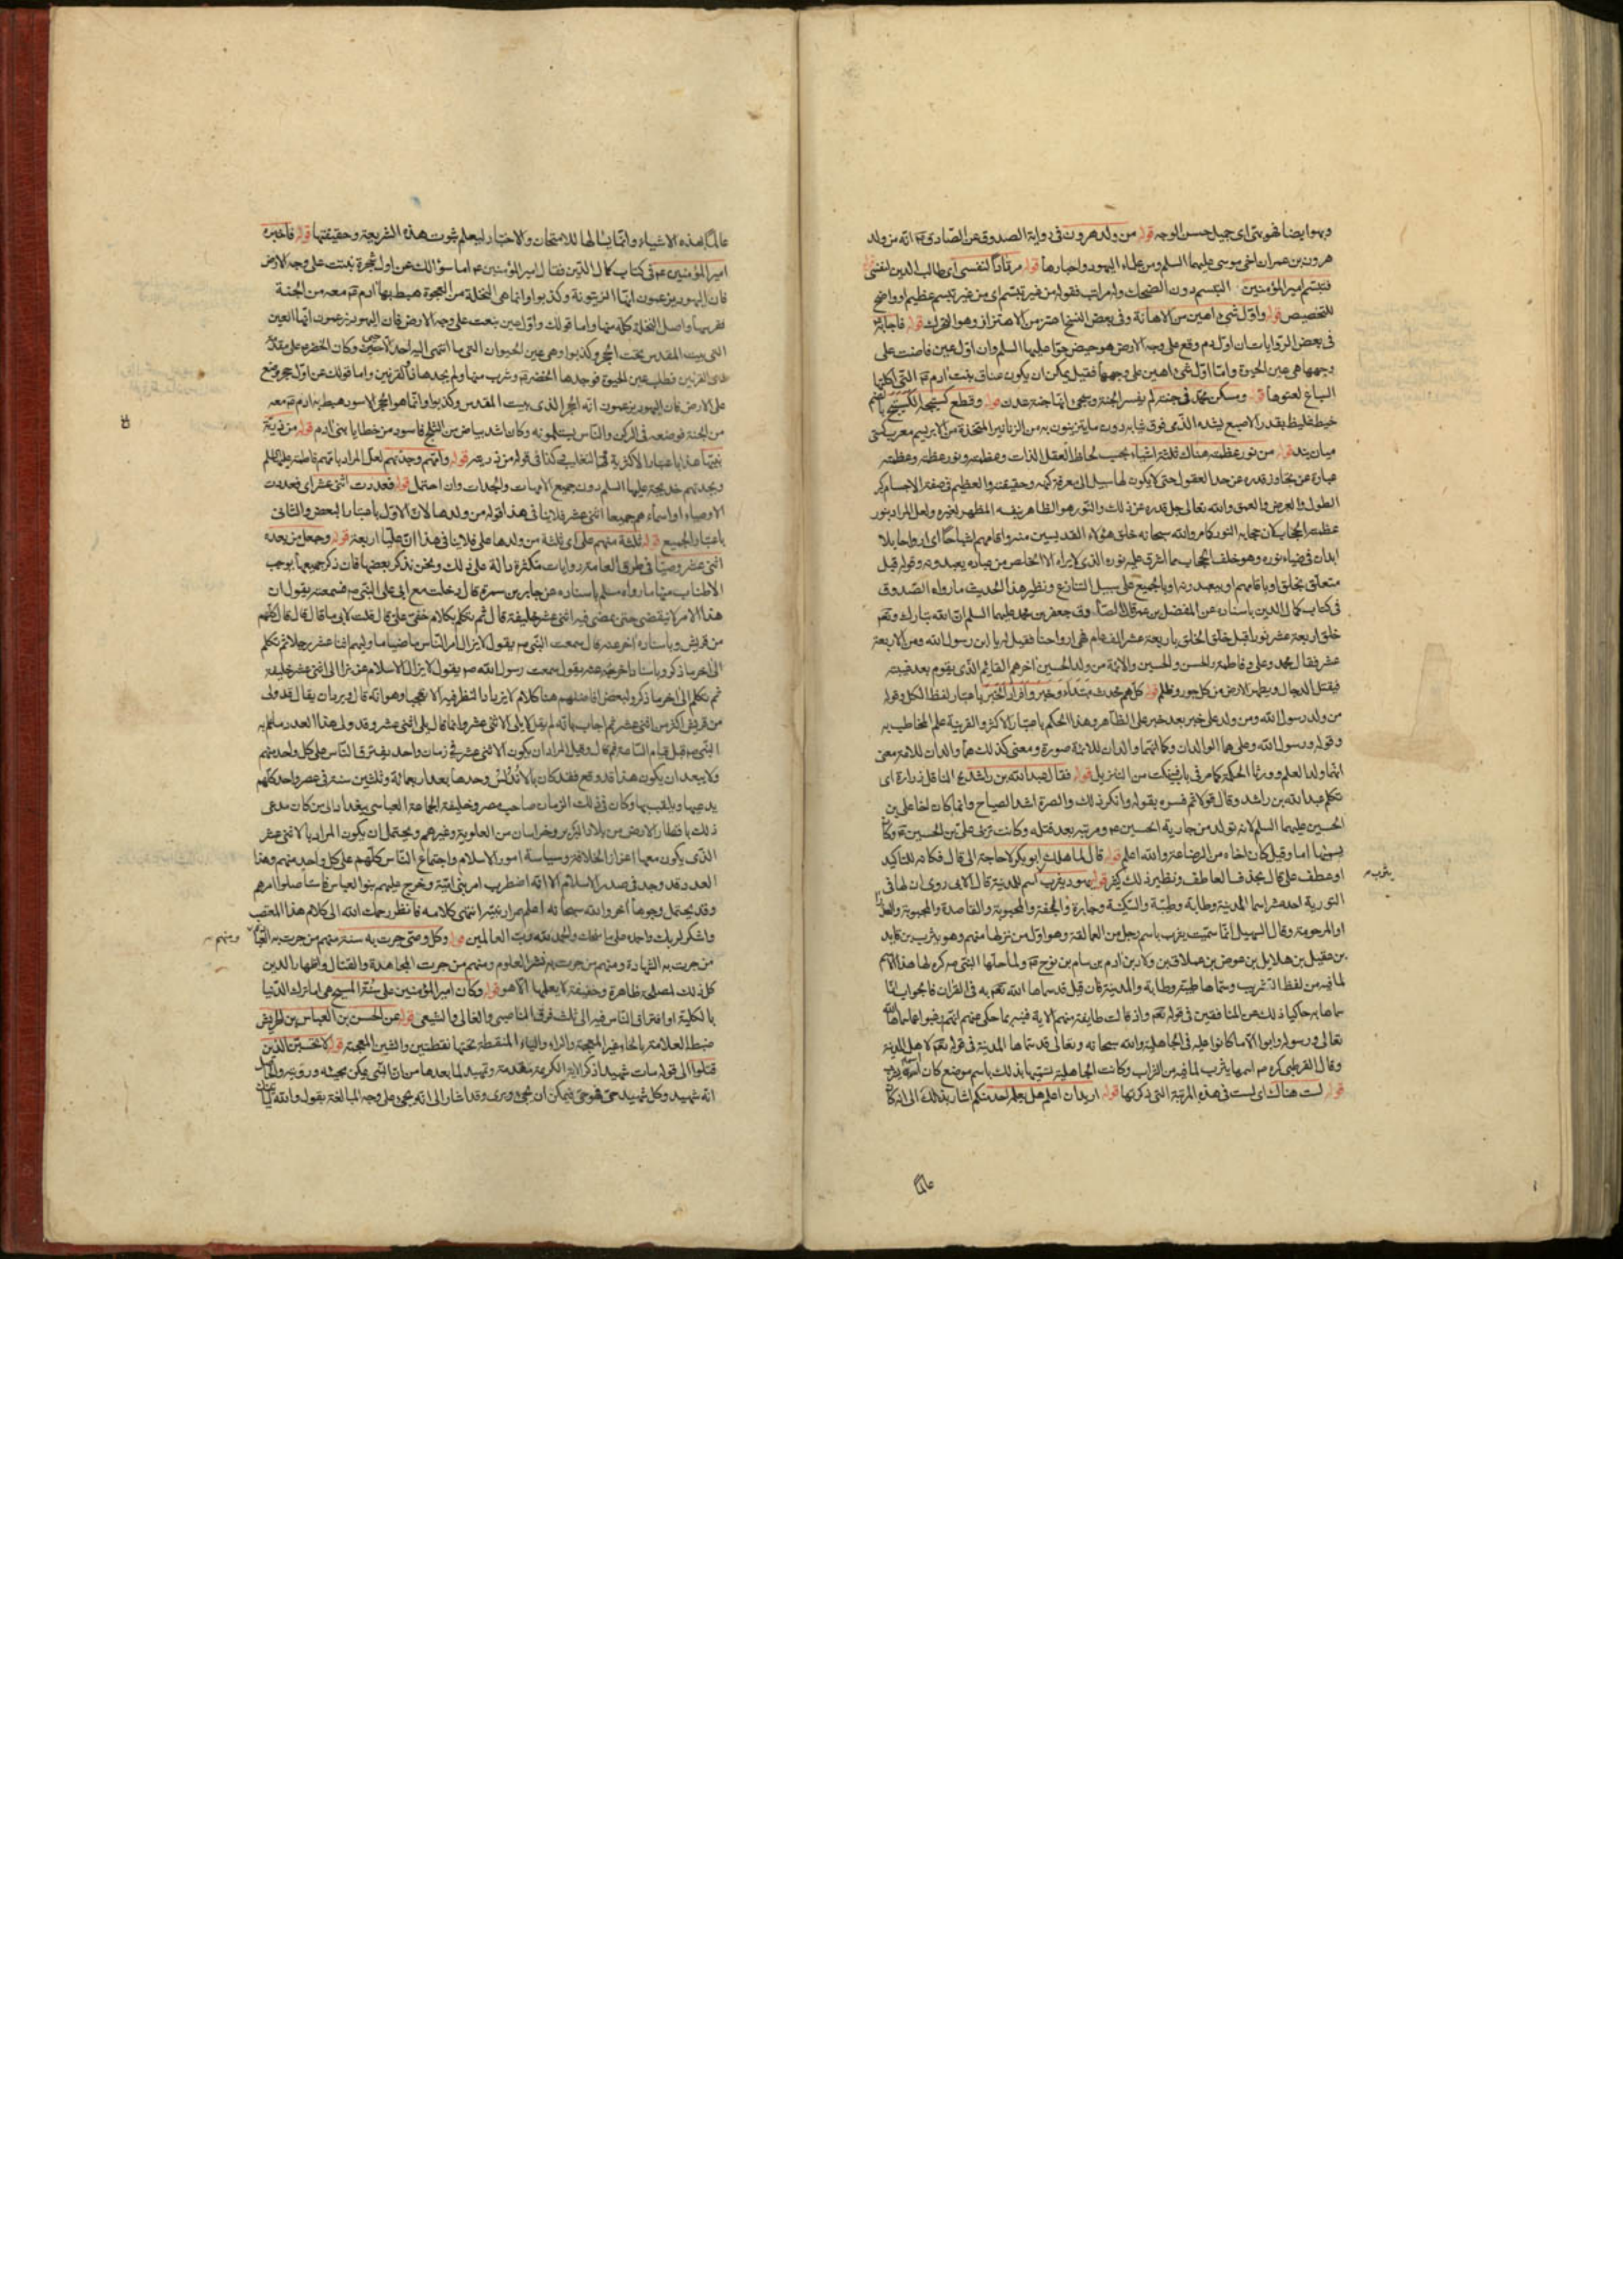 وبهو ايضا فهو بهى اى جميل حسن الوجه قوله من ولد هرون فى رواية الصدوق عن الصادق ع انه من ولد
هرون بن عمران اخى موسى عليهما السلم ومن علماء اليهود واحبارها قوله مرتادا لنفسى اى طالب الدين لنفسى
فتبسم امير المؤمنين التبسم دون الضحك وله مراتب فقوله من غير تبسم اى من غير تبسم عظيم او واضح
للتخصيص قوله واول شئ اهين من الاهانة وفى بعض النسخ اهتز من الاهتزاز وهو التحرك قوله فاجابه
فى بعض الروايات ان اول دم وقع على وجه الارض هو حيض حوا عليها السلم وان اول عين فاضت على
وجهها هى عين الحيوة واما اول شئ اهين على وجهها فقيل يمكن ان يكون عناق بنت ادم ع التى اكلتها
السباع لعتوها قوله ومسكن محمد فى جنته لم يفسر الجنة وجئ انها جنة عدن قوله وقطع كستيجه الكستيج بالضم
خيط غليظ بقدر الاصبع يشده الذمى فوق ثيابه دون ما يتزينون به من الزنانير المتخذة من الابريسم معرب كستى
ميان بند قوله من نور عظمته هناك ثلثة اشياء بحسب لحاظ العقل الذات وعظمته ونور عظمته وعظمته
عبارة عن تجاوز قدره عن حد العقول حتى لا يكون لها سبيل الى معرفة كنهه وحقيقته والعظيم فى صفة الاجسام كبر
الطول والعرض والعمق والله تعالى جل قدره عن ذلك والنور هو الظاهر بنفسه المظهر لغيره ولعل المراد بنور
عظمته الحجاب لان حجابه النور كما مر والله سبحانه خلق هؤلاء القديسين منه واقامهم اشباحا اى ارواحا بلا
ابدان فى ضياء نوره وهو خلف الحجاب مما اشرق عليه نوره الذى لا يراه الا الخلص من عباده يعبدونه وقوله قبل
متعلق بخلق او باقامهم او بيعبدونه او بالجميع على سبيل التنازع ونظير هذا الحديث ما رواه الصدوق
فى كتاب كمال الدين باسناده عن المفضل بن عمر قال قال الصادق جعفر بن محمد عليهما السلم ان الله تبارك وتعالى
خلق اربعة عشر نورا قبل خلق الخلق باربعة عشر الف عام فهى ارواحنا فقيل له يا ابن رسول الله ومن الاربعة
عشر فقال محمد وعلى وفاطمة والحسن والحسين والائمة من ولد الحسين اخرهم القائم الذى يقوم بعد غيبته
فيقتل الدجال ويطهر الارض من كل جور وظلم قوله كلهم محدث مبتداء وخبر وافراد الخبر باعتبار لفظ الكل وقوله
من ولد رسول الله ومن ولد على خبر بعد خبر على الظاهر وهذا الحكم باعتبار الاكثر والقرينة علم المخاطب به
وقوله ورسول الله وعلى هما الوالدان وكما انهما والدان للائمة صورة ومعنى كذلك هما والدان للامة معنى
انهما ولدا العلم وورثا الحكمة كما مر فى باب فيه نكت من التنزيل قوله فقال عبد الله بن راشد ع الناقل زرارة اى
تكلم عبد الله بن راشد وقال قولا ثم فسره بقوله وانكر ذلك والصرة اشد الصياح وانما كان اخا على بن
الحسين عليهما السلم لانه تولد من جارية الحسين ع ومرتبه بعد قتله وكانت تربى على بن الحسين ع وكان
يسميها اما وقيل كان اخاه من الرضاعة والله اعلم قوله قال لما هلك ابو بكر لا حاجة الى قال فكانه للتاكيد
او عطف على قال بحذف العاطف ونظير ذلك كثير قوله يهود يثرب اسم للمدينة قال الابى روى ان لها فى
يثرب
التورية احد عشر اسما المدينة وطابة وطيبة والسكينة وجابرة والمحفة والمحبوبة والقاصدة والمجبورة والعذراء
او المرحومة وقال السهيلى انما سميت يثرب باسم رجل من العمالقة وهو اول من نزلها منهم وهو يثرب بن قايد
بن عقيل بن هلايل بن عوض بن عملاق بن ولاد بن ادم بن سام بن نوح ع ولما حلها النبى ص كره لها هذا الاسم
لما فيه من لفظ التثريب وسماها طيبة وطابة والمدينة فان قيل قد سماها الله تعالى به فى القران فالجواب انما
سماها به حاكيا ذلك عن المنافقين فى قوله تعالى واذ قالت طايفة منهم الاية فنبه بما حكى عنهم انهم رغبوا عما سماها الله
تعالى ورسوله وابوا الا ما كانوا عليه فى الجاهلية والله سبحانه وتعالى قد سماها المدينة فى قوله تعالى لاهل المدينة
وقال القرطبى كره ص اسمها يثرب لما فيه من الثراب وكانت الجاهلية تسميها بذلك باسم موضع كان اسمه يثرب
قوله لست هناك اى لست فى هذه المرتبة التى ذكرتها قوله اريد ان اعلم هل يعلم احد منكم اشار بذلك الى انه كان
عالما
عالما بهذه الاشياء وانما يسالها للامتحان والاختبار ليعلم ثبوت هذه الشريعة وحقيقتها قوله فاخبره
امير المؤمنين ع فى كتاب كمال الدين فقال امير المؤمنين ع اما سؤالك عن اول شجرة نبتت على وجه الارض
فان اليهود يزعمون انها الزيتونة وكذبوا وانما هى النخلة من العجوة هبط بها ادم ع معه من الجنة
فغرسها واصل النخلة كله منها واما قولك واول عين نبعت على وجه الارض فان اليهود يزعمون انها العين
التى ببيت المقدس تحت الحجر وكذبوا وهى عين الحيوان التى ما انتهى اليه احد الا حيى وكان الخضر ع على مقدمة
ذى القرنين فطلب عين الحيوة فوجدها الخضر ع وشرب منها ولم يجدها ذو القرنين واما قولك عن اول حجر وضع
على الارض فان اليهود يزعمون انه الحجر الذى ببيت المقدس وكذبوا وانما هو الحجر الاسود هبط به ادم ع معه
من الجنة فوضعه فى الركن والناس يستلمونه وكان اشد بياض من الثلج فاسود من خطايا بنى ادم قوله من ذرية
نبيها هذا باعتبار الاكثرية او التغليب كذا فى قوله من ذريته قوله وامهم وجدتهم لعل المراد بامهم فاطمة عليها السلم
وبجدتهم خديجة عليها السلم دون جميع الامهات والجدات وان احتمل قوله فعددت اثنى عشر اى فعددت
الاوصياء او اسماءهم جميعا اثنى عشر فلا ينافى هذا قوله من ولدها لان الاول باعتبار البعض والثانى
باعتبار الجميع قوله ثلثة منهم على اى ثلثة من ولدها على فلا ينافى هذا ان عليا اربعة قوله وجعل من بعده
اثنى عشر وصيا فى طرق العامة روايات متكثرة دالة على ذلك ونحن نذكر بعضها فان ذكر جميعها يوجب
الاطناب منها ما رواه مسلم باسناده عن جابر بن سمرة قال دخلت مع ابى على النبى ص فسمعته يقول ان
هذا الامر لا ينقضى حتى يمضى فيه اثنى عشر خليفة قال ثم تكلم بكلام خفى على قال فقلت لابى ما قال قال قال كلهم
من قريش وباسناد اخر عنه قال سمعت النبى ص يقول لا يزال امر الناس ماضيا ما وليهم اثنا عشر رجلا ثم تكلم
الى اخر ما ذكر وباسناد اخر عنه يقول سمعت رسول الله ص يقول لا يزال الاسلام عزيزا الى اثنى عشر خليفة
ثم تكلم الى اخر ما ذكر ولبعض افاضلهم هنا كلام لا يزيد النظر فيه الا تعجبا وهو انه قال فيه بان يقال قد ولى
من قريش اكثر من اثنى عشر ثم اجاب بانه لم يقل لا يلى الا اثنى عشر وانما قال يلى اثنى عشر وقد ولى هذا العدد
النبى ص قبل قيام الساعة ثم قال وقيل المراد ان يكون الاثنى عشر فى زمان واحد يفترق الناس على كل واحد منهم
ولا يبعد ان يكون هذا قد وقع فقد كان بالاندلس وحدها بعد اربعمائة وثلثين سنة فى عصر واحد كلهم
يدعيها ويلقب بها وكان فى ذلك الزمان صاحب مصر وخليفة الجماعة العباسى ببغداد الى من كان يدعى
ذلك باقطار الارض من بلاد البربر وخراسان من العلوية وغيرهم ويحتمل ان يكون المراد بالاثنى عشر
الذى يكون معها اعزاز الخلافة وسياسة امور الاسلام واجتماع الناس كلهم على كل واحد منهم وهذا
العدد قد وجد فى صدر الاسلام الا انه اضطرب امر بنى امية وخرج عليهم بنو العباس فاستاصلوا امرهم
وقد يحتمل وجوها اخر والله سبحانه اعلم بمراد نبيه انتهى كلامه فانظر رحمك الله الى كلام هذا المتعصب
واشكر لربك واحمده على ما نجاك والحمد لله رب العالمين قوله وكل وصى جرت به سنة منهم من جرت به التقية
ومنهم
من جرت به الشهادة ومنهم من جرت به نشر العلوم ومنهم من جرت المجاهدة والقتال واظهار الدين
كل ذلك لمصلحة ظاهرة وخفية لا يعلمها الا هو قوله وكان امير المؤمنين على سنة المسيح هى اما ترك الدنيا
بالكلية او افتراق الناس فيه الى ثلث فرق الناصبى والغالى والشيعى قوله عن الحسن بن العباس بن الحريش
ضبط العلامة بالحاء غير المعجمة والراء والياء المنقطة تحتها نقطتين والشين المعجمة قوله لا تحسبن الذين
قتلوا الى قوله مات شهيدا ذكر الاية الكريمة مقدمة وتمهيد لما بعدها من ان النبى يمكن مجيئه ورؤيته
انه شهيد وكل شهيد حى فهو حى فيمكن ان يجئ ويرى وقد اشار الى انه يجئ على وجه المبالغة بقوله والله